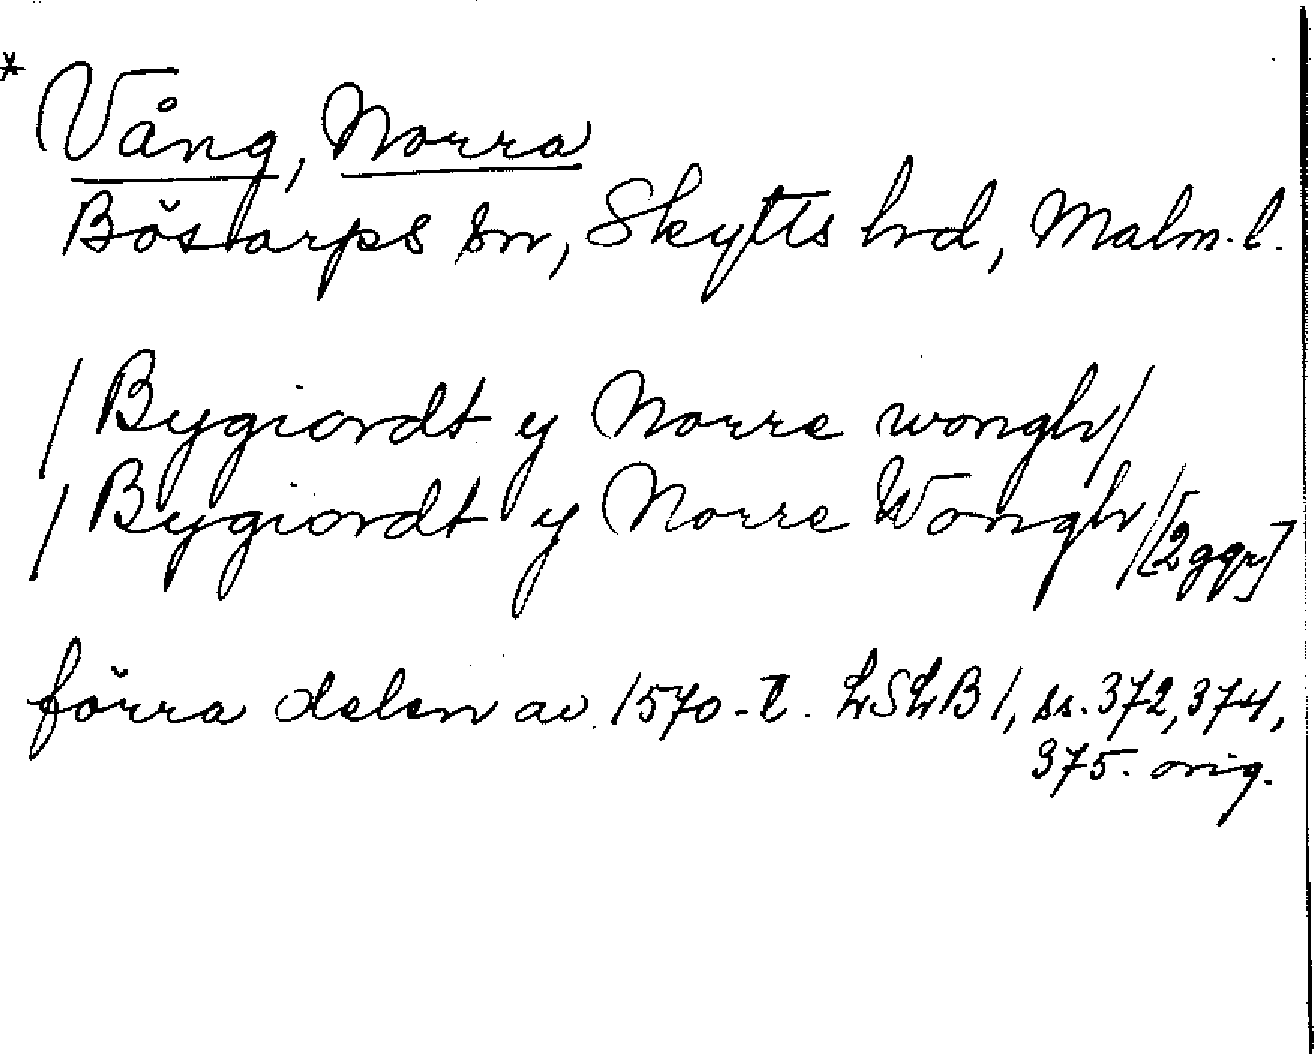 * Vång, Norra
Bösarps sn, Skytts hd, Malm. l.
/Bygiordt y Norre wongh/
/Bygiordt y Norre Wongh/[2 ggr]
förra delen av 1570-t. LSLB 1, ss. 372, 374,
375. orig.